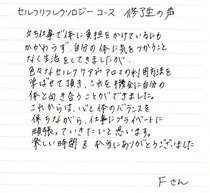 セルフリフレクソロジーコース 修了生の声
立ち仕事で体に負担をかけているにも
かかわらず、自分の体に気をつかうこと
なく生活をしてきましたが、
色々なセルフケアやアロマの利用方法を
学ばせて頂き、これを機会に自分の
体と向き合うことができました。
これからは、心と体のバランスを
保ちながら、仕事にプライベートに
頑張っていきたいと思います。
楽しい時間を本当にありがとうございました
Fさん